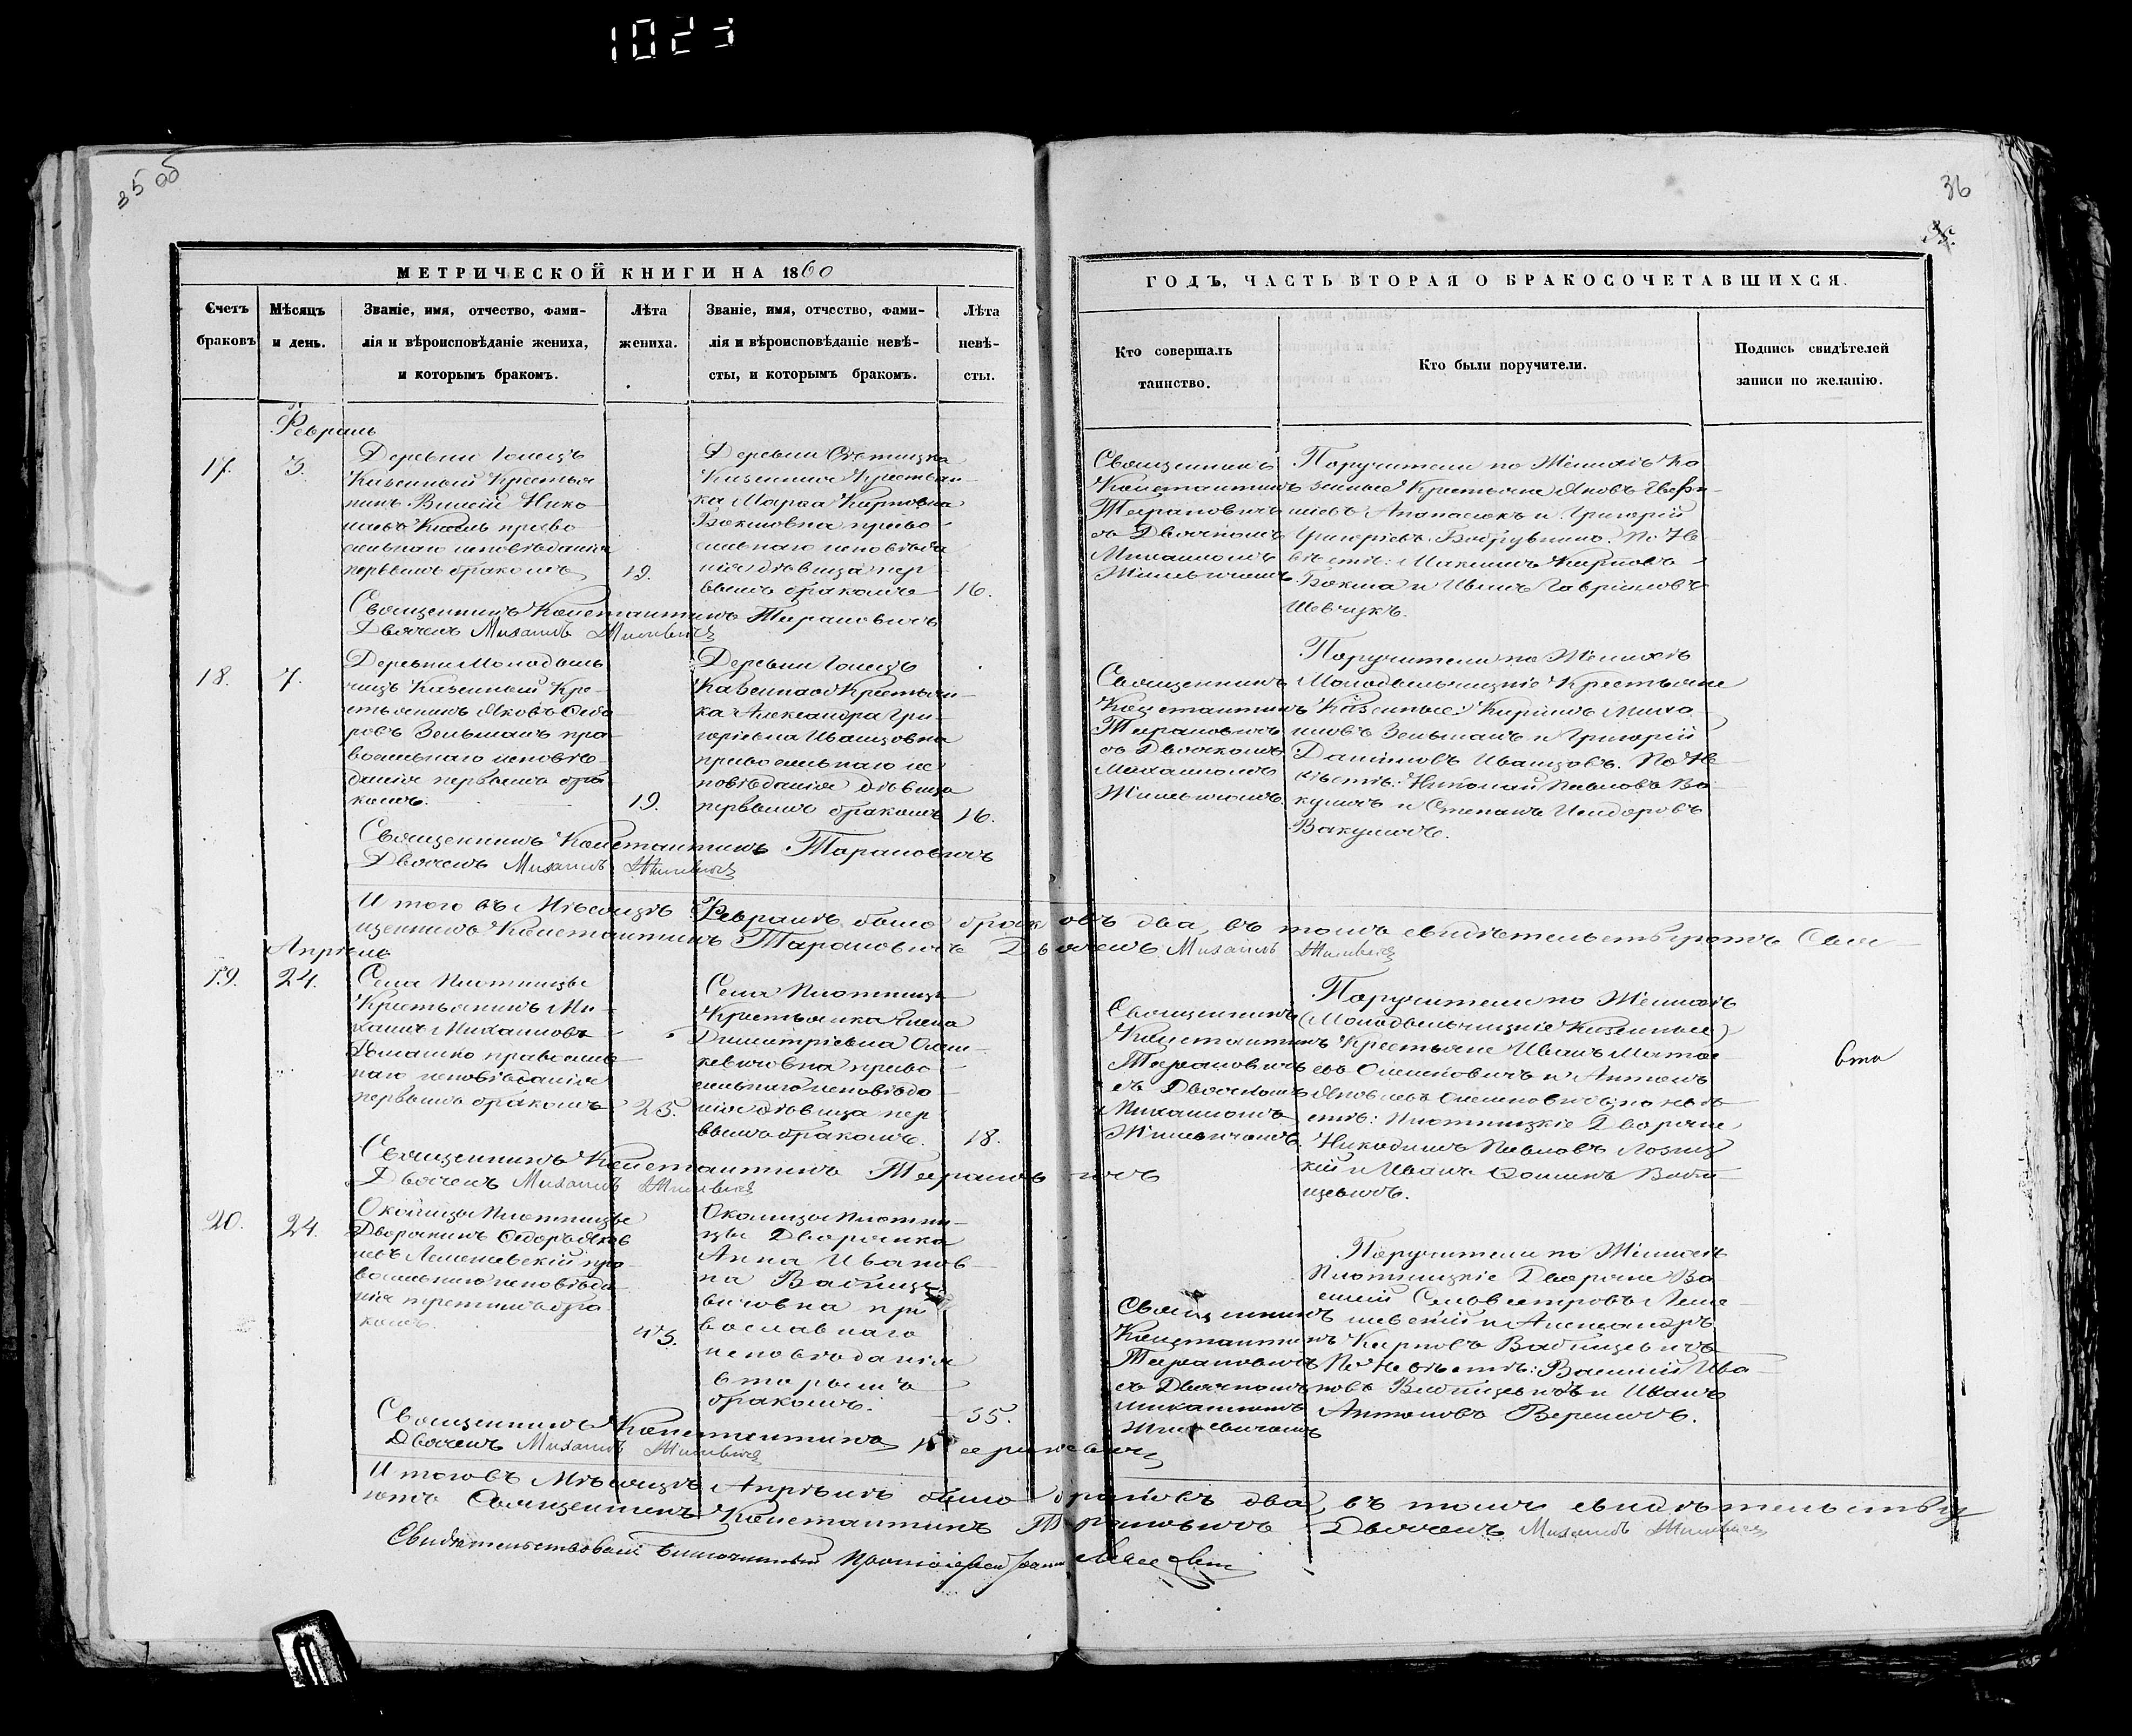 1023
35 об
36
35.
МЕТРИЧЕСКОЙ КНИГИ НА 1860
Счетъ браковъ
Мѣсяцъ и день.
Званіе, имя, отчество, фами-
лія и вѣроисповѣданіе жениха,
и которымъ бракомъ.
Лѣта жениха.
Званіе, имя, отчество, фами-
лія и вѣроисповѣданіе невѣ-
сты, и которымъ бракомъ.
Лѣта невѣ-
сты.
ГОДЪ, ЧАСТЬ ВТОРАЯ О БРАКОСОЧЕТАВШИХСЯ.
Кто совершалъ
таинство.
Кто были поручители.
Подпись свидѣтелей
записи по желанію.
Февраль
17.
3.
Деревни Гонецъ
Казенный Крестья
нинъ
Нико
лаевъ
право
славнаго исповѣданія
первымъ бракомъ
19.
Деревни
Казенная Крестьян-
ка Марѳа Карповна
Бокшовна право
славнаго исповѣда
нія дѣвица пер
вымъ бракомъ
16.
Священникъ
Константинъ
Тарановичъ
съ Дьячкомъ
Михаиломъ
Жилевичемъ
Поручители по Женихѣ Ка
зенные Крестьяне Яковъ
Апанасюкъ и Григорій
Григоріевъ По Не
вѣстѣ: Максимъ Карповъ
Бокша и Иванъ Гавріиловъ
Шевчукъ.
Священникъ Константинъ Тарановичъ
Дьячекъ Михаилъ Жилевичъ
18.
7.
Деревни Молодель
чицъ Казенный Кре-
стьянинъ Яковъ Ѳедо
ровъ Зельманъ пра-
вославнаго исповѣ-
данія первымъ бра-
комъ.
19.
Деревни Гонецъ
Казенная Крестьян-
ка Александра Гри-
горіевна Иванцовна
православнаго ис
повѣданія дѣвица
первымъ бракомъ
16.
Священникъ
Константинъ
Тарановичъ
съ Дьячкомъ
Михаиломъ
Жилевичемъ.
Поручители по Женихѣ
Молодельчицкіе Крестьяне
Казенные: Кирилъ Миха
иловъ Зельманъ и Григорій
Даниловъ Иванцовъ. По Не
вѣстѣ: Николай Павловъ Ва
куличъ и Степанъ Исидоровъ
Вакуличъ.
Священникъ Константинъ Тарановичъ
Дьячекъ Михаилъ Жилевичъ
Итого въ Мѣсяцѣ Февралѣ было браковъ два, въ томъ свидѣтельствуютъ Свя
щенникъ Константинъ Тарановичъ Дьячекъ Михаилъ Жилевичъ
Апрѣль
19.
24.
Села Плотницы
Крестьянинъ Ми-
хаилъ Михаиловъ
Домашко православ
наго исповѣданія
первымъ бракомъ
25.
Села Плотницы
Крестьянка
Димитріевна Олеш-
кевичовна право
славнаго исповѣда
нія дѣвица пер
вымъ бракомъ.
18.
Священникъ
Константинъ
Тарановичъ
съ Дьячкомъ
Михаиломъ
Жилевичемъ.
Поручители по Женихѣ
(Молодельчицкіе Казенные)
Крестьяне Иванъ Матве
евъ и Антонъ
Яковлевъ по Невѣ
стѣ: Плотницкіе Дворяне
Никодимъ Павловъ
кій и Иванъ Ѳоминъ Ваби
щевичъ.
Священникъ Константинъ Тарановичъ
Дьячекъ Михаилъ Жилевичъ
20.
24.
Околицы Плотницы
Дворянинъ Ѳедоръ Яков
левъ Лемешевскій пра-
вославнаго исповѣда
нія третимъ бра
комъ.
45.
Околицы Плотни-
цы Дворянка
Анна Иванов-
на Вабище
вичовна пра
вославнаго
исповѣданія
вторымъ
бракомъ.
35.
Священникъ
Константинъ
Тарановичъ
съ Дьячкомъ
Михаиломъ
Жилевичемъ
Поручители по Женихѣ
Плотницкіе Дворяне Ва
силій Селивестровъ Леме-
шевскій и Александръ
Карповъ Вабищевичъ
По Невѣстѣ: Василій Ива
новъ Вабищевичъ и Иванъ
Антоновъ Веремичъ.
Священникъ Константинъ Тарановичъ
Дьячекъ Михаилъ Жилевичъ
Итого въ Мѣсяцѣ Апрѣлѣ было браковъ два, въ томъ свидѣтельству
ютъ Священникъ Константинъ Тарановичъ Дьячекъ Михаилъ Жилевичъ
Свидѣтельствовалъ Благочинный Протоіерей Іоаннъ